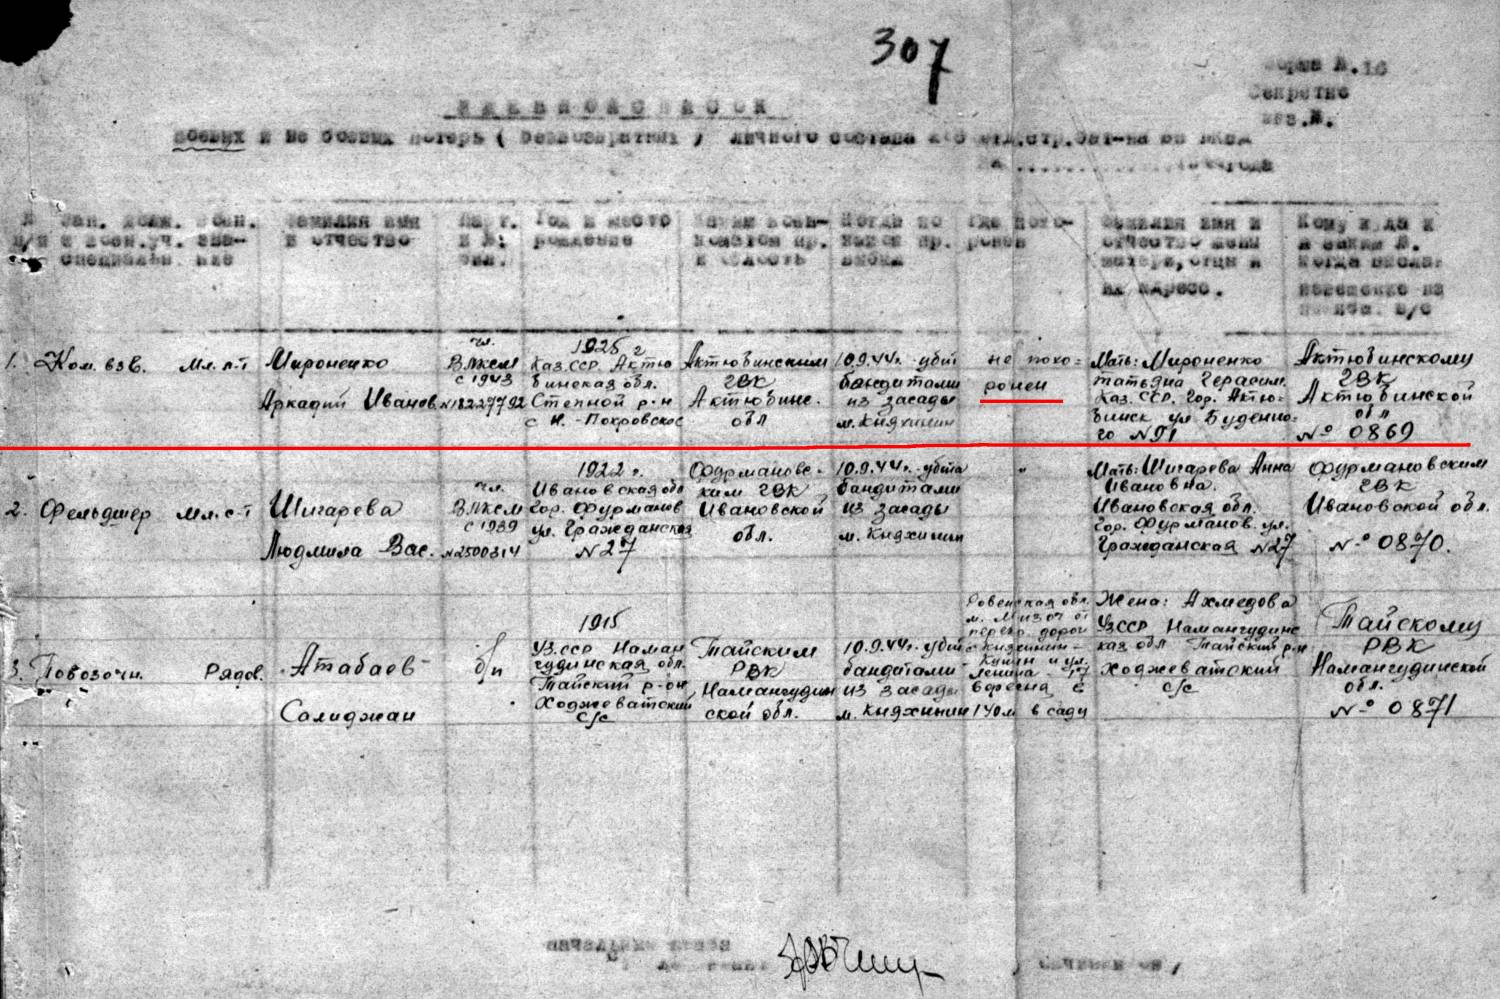 307
Форма №.10
Секретно
экз.№.
боевых и не боевых потерь ( безвозвратных ) личного состава
года
Фамилия имя
и отчество
Парт.
и №:
Год и место
рождение
Каким воен-
коматом пр.
и область
Когда по
какой пр.
выбыл
Где похо-
ронен
Фамилия имя и
отчество жены
матери, отца и
их адресс.
Кому куда и
за каким №.
когда высла-
извещение на
1. Ком. взв. Мл. л-т
Мироненко
Аркадий Иванов.
чл.
ВЛКСМ
с 1943
№18227792
1925 г
Каз.ССР Актю
бинская обл.
Степной р-н
с Н.-Покровское
Актюбинским
ГВК
Актюбинс.
обл
10.9.44г. убит
бандитами
из засады
м. Княхинин
не похо-
ронен
Мать: Мироненко
татьяна Герасим.
Каз. ССР. Гор. Актю-
бинск ул Буденно-
го №91
Актюбинскому
ГВК
Актюбинской
обл
№ 0869
2. Фельдшер Мл. с-т
Шигарева
Людмила Вас.
чл.
ВЛКСМ
с 1939
№2500314
1922 г.
Ивановская обл
Гор. Фурманов
ул. Гражданская
№27
Фурмановс-
ким ГВК
Ивановской
обл.
10.9.44г. убита
бандитами
из засады
м. Княхинин
"
Мать: Шигарева Анна
Ивановна.
Ивановская обл.
Гор. Фурманов. ул.
Гражданская №27
Фурмановским
ГВК
Ивановской обл.
№ 0870.
3. Повозочн. Рядов.
Атабаев
Солиджан
б/п
1915
Уз.ССР Наман
гудинская обл.
Тайский р-он
Ходжеватский
с/с
Тайским
РВК
Намангудин
ской обл.
10.9.44г. убит
бандетами
из засады
м. Княхинин
Ровенская обл.
м. Мизоч от
перекр. дорог
с Княхинин-
Кунин и ул.
Ленина - 17
140м в саду
Жена: Ахмедова
УзССР Намангудинс
кая обл Тайский р-н
Ходжеватский
с/с
Тайскому
РВК
Намангудинской
обл.
№ 0871